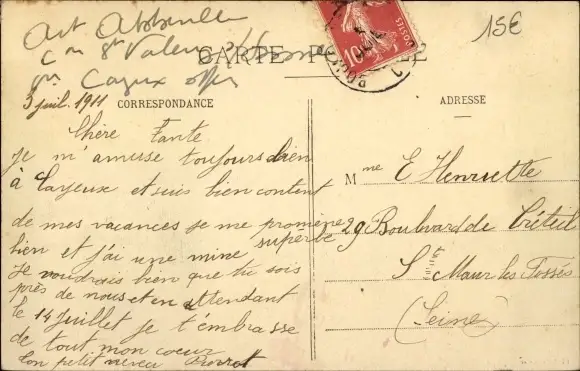 Art Abbeville
15€
Con St Valery s/ Somme
CARTE P
Cayeux
10
POSTES
3 juil. 1911
CORRESPONDANCE
ADRESSE
Chère Tante
Je m'amuse toujours bien
à Cayeux et suis bien content
de mes vacances je me promène
bien et j'ai une mine superbe
Je voudrais bien que tu sois
près de nous et en attendant
le 14 Juillet je t'embrasse
de tout mon coeur
Ton petit neveu Pierrot
Mme E Henriette
29 Boulevard de Créteil
St Maur les Fossés
(Seine)